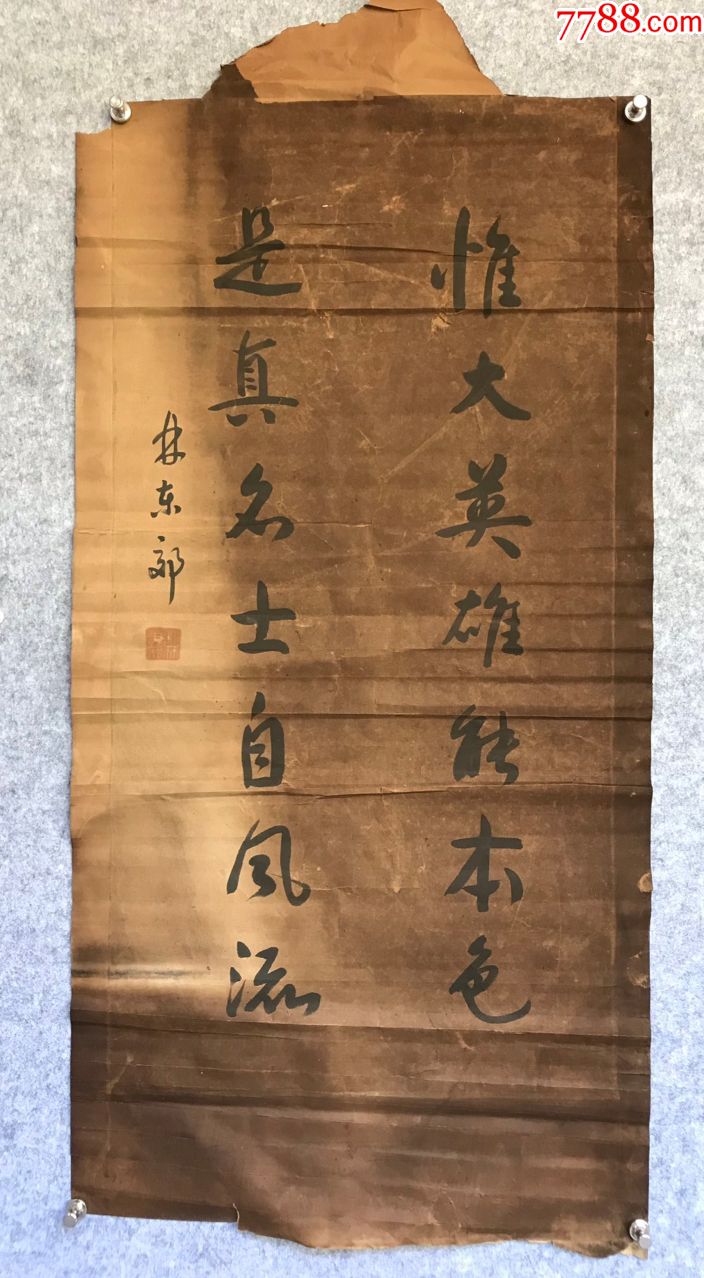 惟大英雄能本色
是真名士自风流
林东郭
7788.com